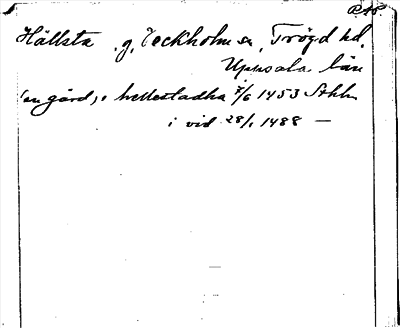 Hällsta, g, Teckholm sn, Trögd hd,
Uppsala län
(en gård), i hellestadha 7/6 1453 Sthlm
i vid 28/1 1488 —